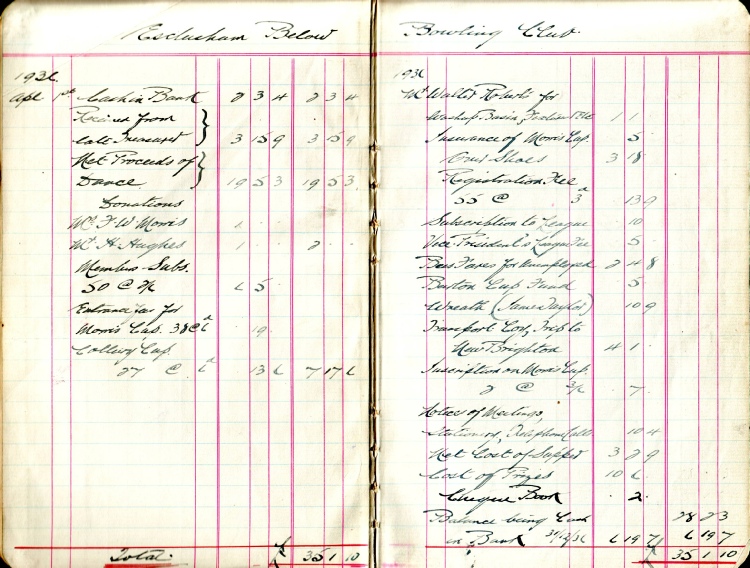 Esclusham Below
1936
Apl 1st Cash in Bank 2 3 4 2 3 4
Received from
Late Treasurer } 3 15 9 3 15 9
Net Proceeds of
Dance } 19 5 3 19 5 3
Donations
Mr F. W. Morris 1 . .
Mr H. Hughes 1 . . 2 . .
Members Subs.
50 @ 2/6 6 5
Entrance fee for
Morris Cup. 38 @ 6d 19
Colliery Cup.
27 @ 6d 13 6 7 17 6
Total. £ 35 1 10
Bowling Club.
1936
Mr Walter Roberts for
1 1
Insurance of Morris Cup. 5
Shoes 3 18
Registration Fee
55 @ 3d 13 9
Subscription to League 10
Vice President's League Fee 5
Bus Fares for Unemployed 2 4 8
Burton Cup Fund 5
Wreath (James Taylor) 10 9
Transport Cost, Trip to
New Brighton 4 1
Inscription on Morris Cup.
2 @ 3/6 7
Notices of Meetings,
Stationery, Telephone Calls 10 4
Net Cost of Supper 3 2 9
Cost of Prizes 10 6
Cheque Book . 2 .
Balance being Cash 28 2 3
in Bank 31/12/36 6 19 7 6 19 7
£ 35 1 10